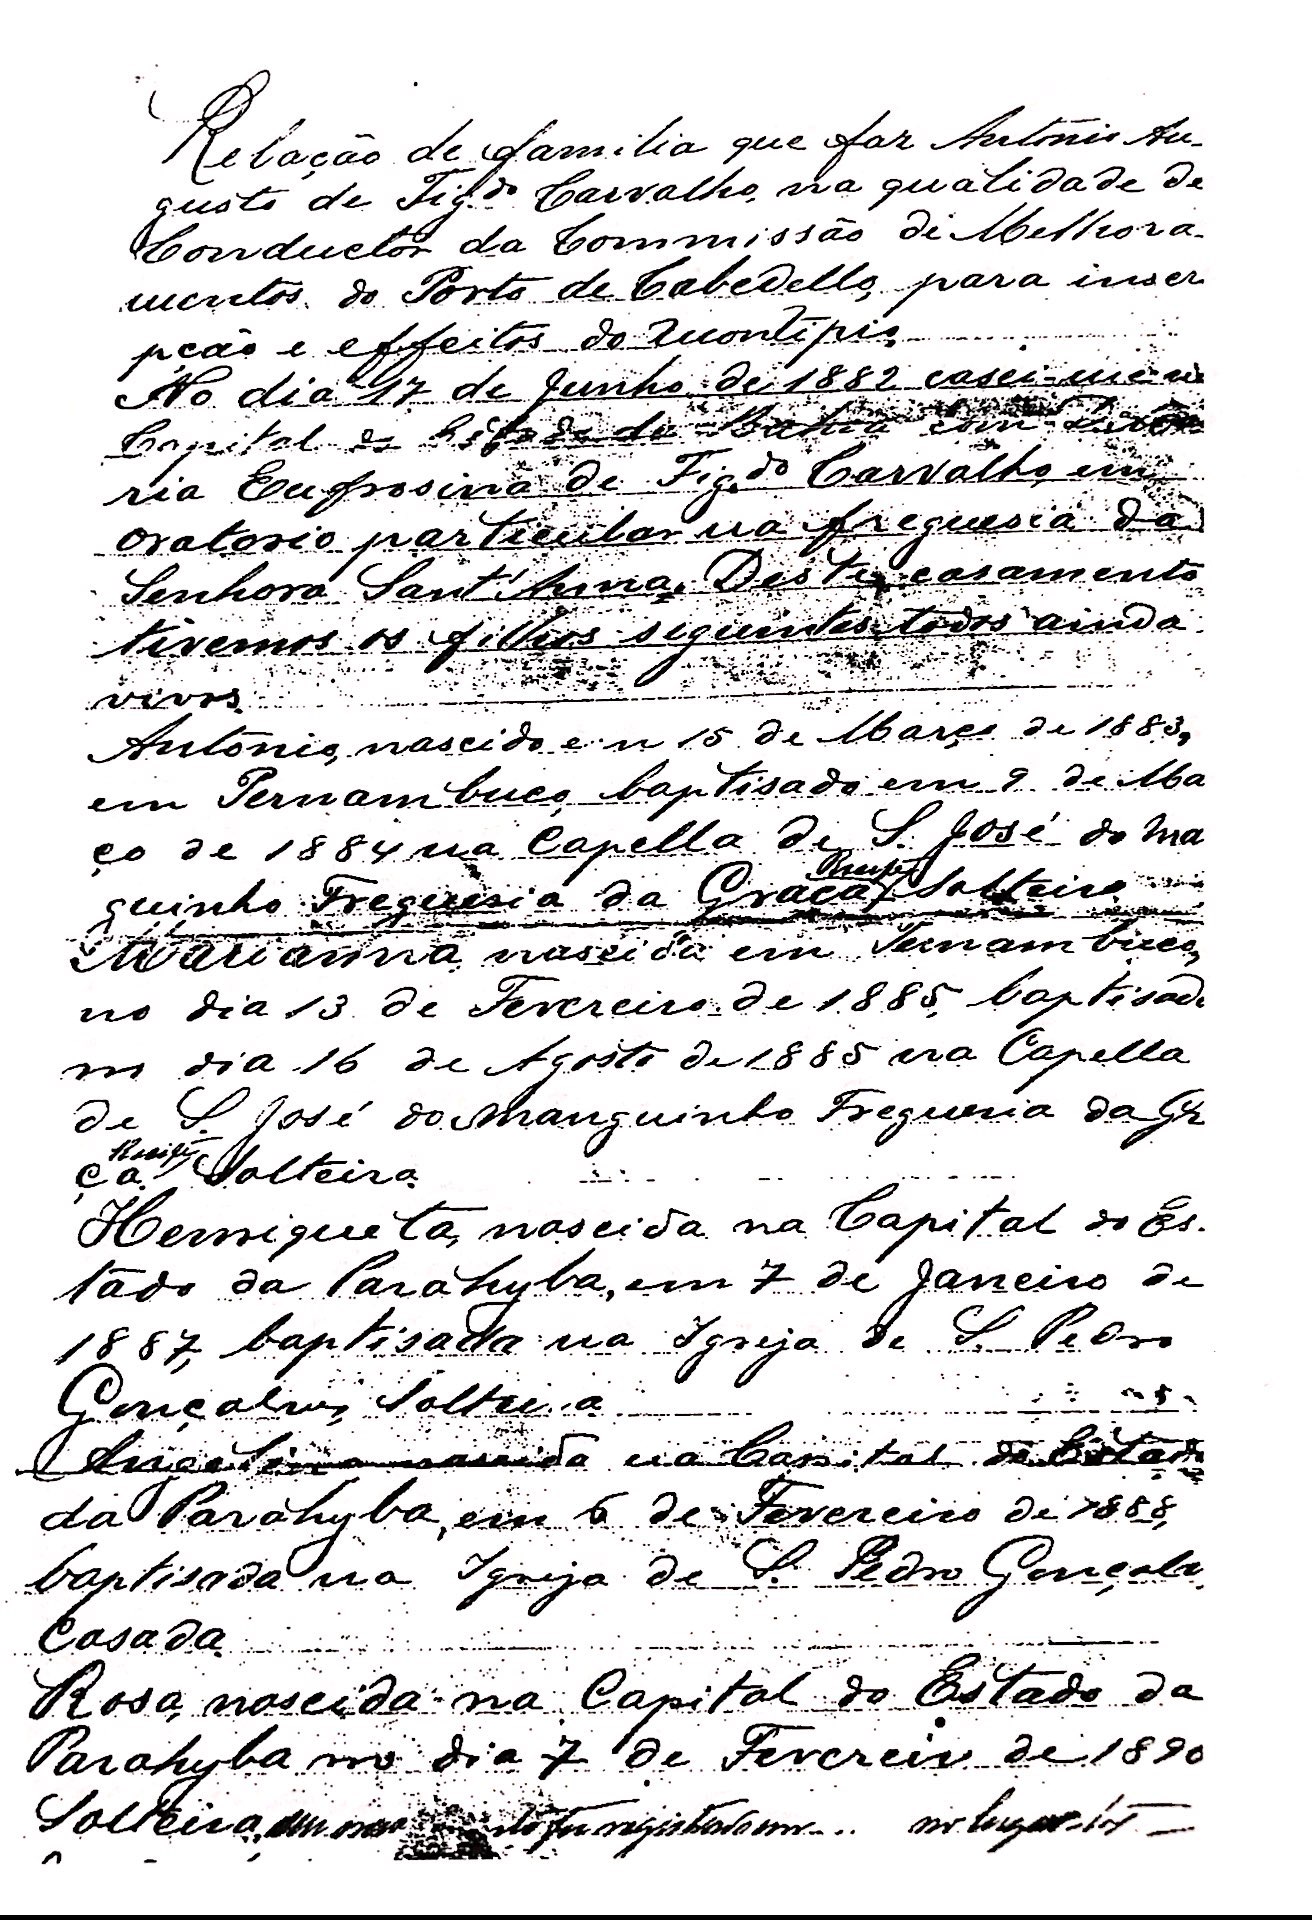 Relação de familia que faz Antônio Au-
gusto de Fig.do Carvalho, na qualidade de
Conductor da Commissão di Melhora-
mentos do Porto de Cabedello, para inser
pção e effeitos do Montipio.
No dia 17 de Junho de 1882 casei-me na
Capital do Estado da Bahia com
ria Eufrosina de Fig.do Carvalho, em
oratorio particular na freguesia da
Senhora Sant'Anna. Deste casamento
tivemos os filhos seguintes todos ainda
vivos.
Antônio, nascido em 15 de Março de 1883,
em Pernambuco, baptisado em 9 de Ma
ço de 1884 na Capella de S. José do Ma
guinho Freguesia da Graça, Recife, Solteiro
Marianna nascida em Pernambuco,
no dia 13 de Fevereiro de 1885, baptisad
no dia 16 de Agosto de 1885 na Capella
de S. José do Manguinho Freguesia da Gr
ça. Recife, Solteira.
Henriqueta, nascida na Capital do Es-
tado da Parahyba, em 7 de Janeiro de
1887, baptisada na Igreja de S. Pedro
Gonçalves, Solteira
Angelina nascida na Capital do Estado
da Parahyba, em 6 de Fevereiro de 1888,
baptisada na Igreja de S. Pedro Gonçalv
Casada
Rosa, nascida na Capital do Estado da
Parahyba no dia 7 de Fevereiro de 1890
Solteira, registrado no lugar